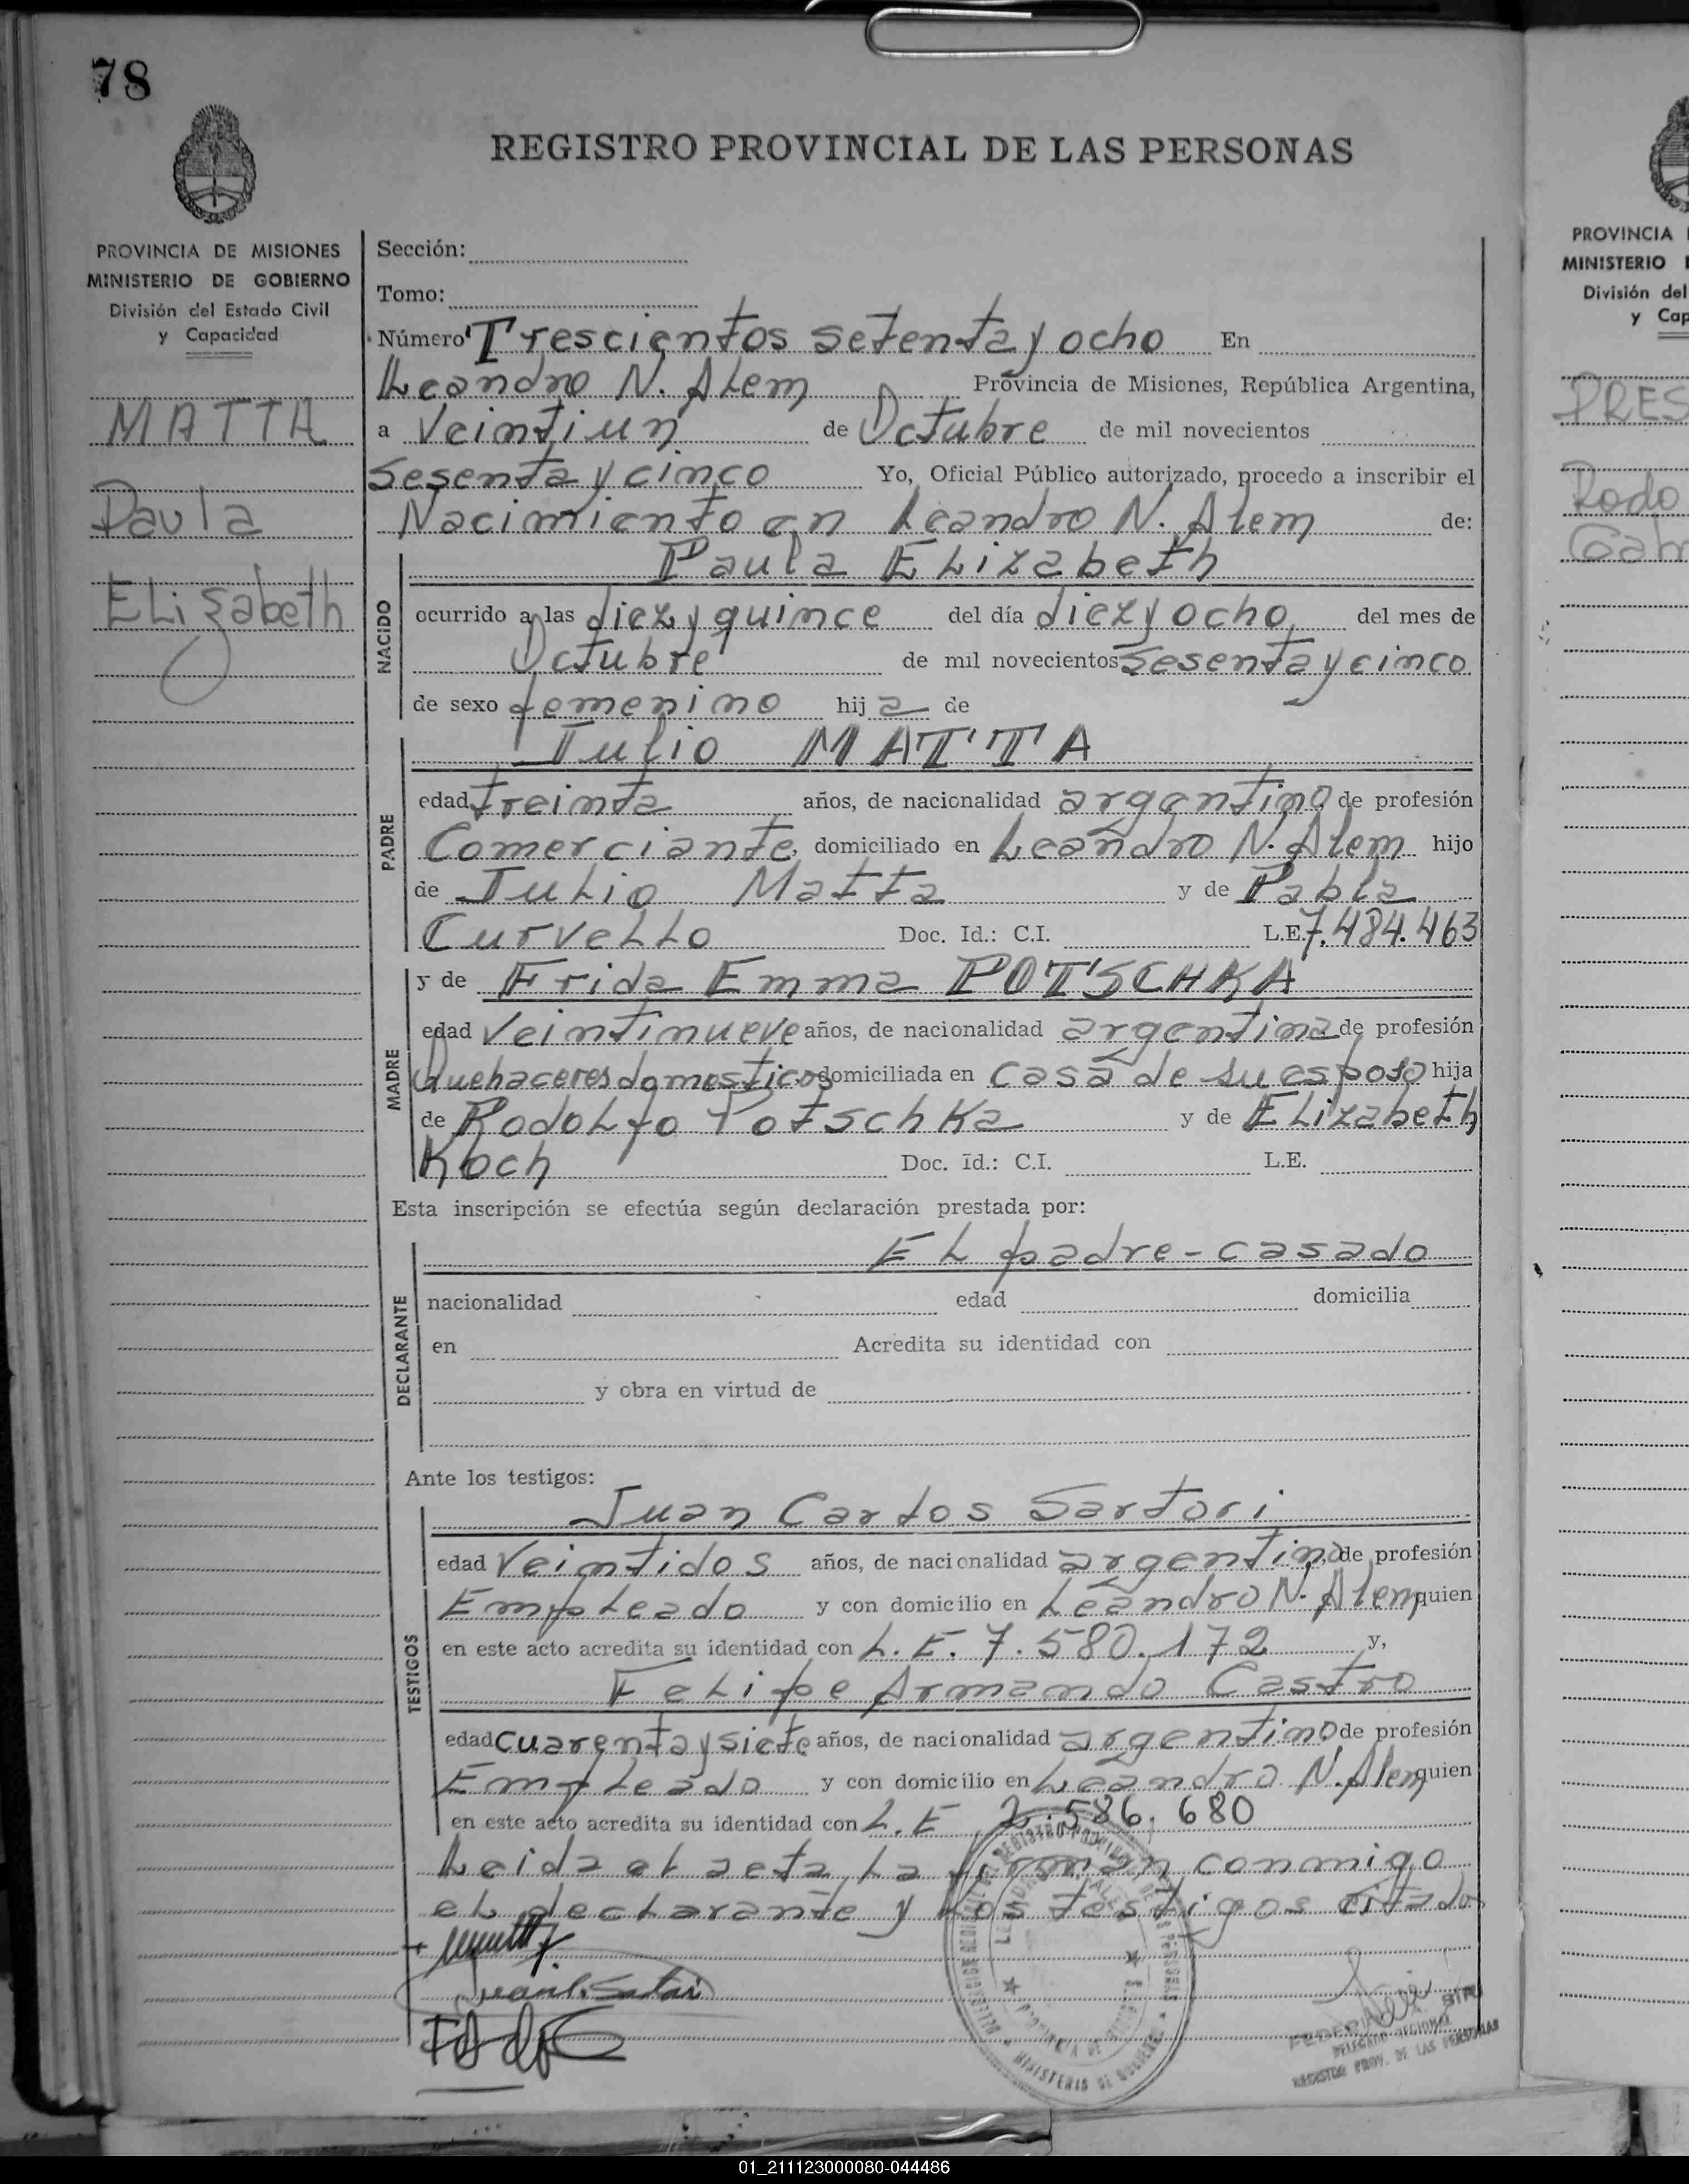 78
REGISTRO PROVINCIAL DE LAS PERSONAS
PROVINCIA DE MISIONES
MINISTERIO DE GOBIERNO
División del Estado Civil
y Capacidad
MATTA
Paula
ELizabeth
Sección:
Tomo:
Número Trescientos setenta y ocho En
Leandro N. Alem Provincia de Misiones, República Argentina,
a Veintiun de Octubre de mil novecientos
Sesenta y cinco Yo, Oficial Público autorizado, procedo a inscribir el
Nacimiento en Leandro N. Alem de:
NACIDO
Paula ELizabeth
ocurrido a las diez y quince del día diez y ocho del mes de
Octubre de mil novecientos Sesenta y cinco
de sexo femenino hija de
PADRE
Julio MATTA
edad treinta años, de nacionalidad argentino de profesión
Comerciante, domiciliado en Leandro N. Alem hijo
de Julio Matta y de Pabla
CurveLLo Doc. Id.: C.I. L.E. 7.484.463
MADRE
y de Frida Emma POTSCHKA
edad Veintinueve años, de nacionalidad argentina de profesión
Quehaceres domesticos domiciliada en casa de su esposo hija
de RodoLfo Potschka y de ELizabeth
Koch Doc. Id.: C.I. L.E.
Esta inscripción se efectúa según declaración prestada por:
DECLARANTE
EL padre - casado
nacionalidad edad domicilia
en Acredita su identidad con
y obra en virtud de
Ante los testigos:
TESTIGOS
Juan Carlos Sartori
edad Veintidos años, de nacionalidad argentino, de profesión
Empleado y con domicilio en Leandro N. Alem quien
en este acto acredita su identidad con L.E. 7.580.172 y,
FeLipe Armando Castro
edad cuarenta y siete años, de nacionalidad argentino de profesión
Empleado y con domicilio en Leandro N. Alem quien
en este acto acredita su identidad con L.E 2.586.680
Leida el acta la firman conmigo
el declarante y los testigos citados
DELEGADO REGIONAL
REGISTRO PROV. DE LAS PERSONAS
MINISTERIO DE GOBIERNO
PROVINCIA
MINISTERIO
División del
y Cap
PRES
Rodo
01_211123000080-044486